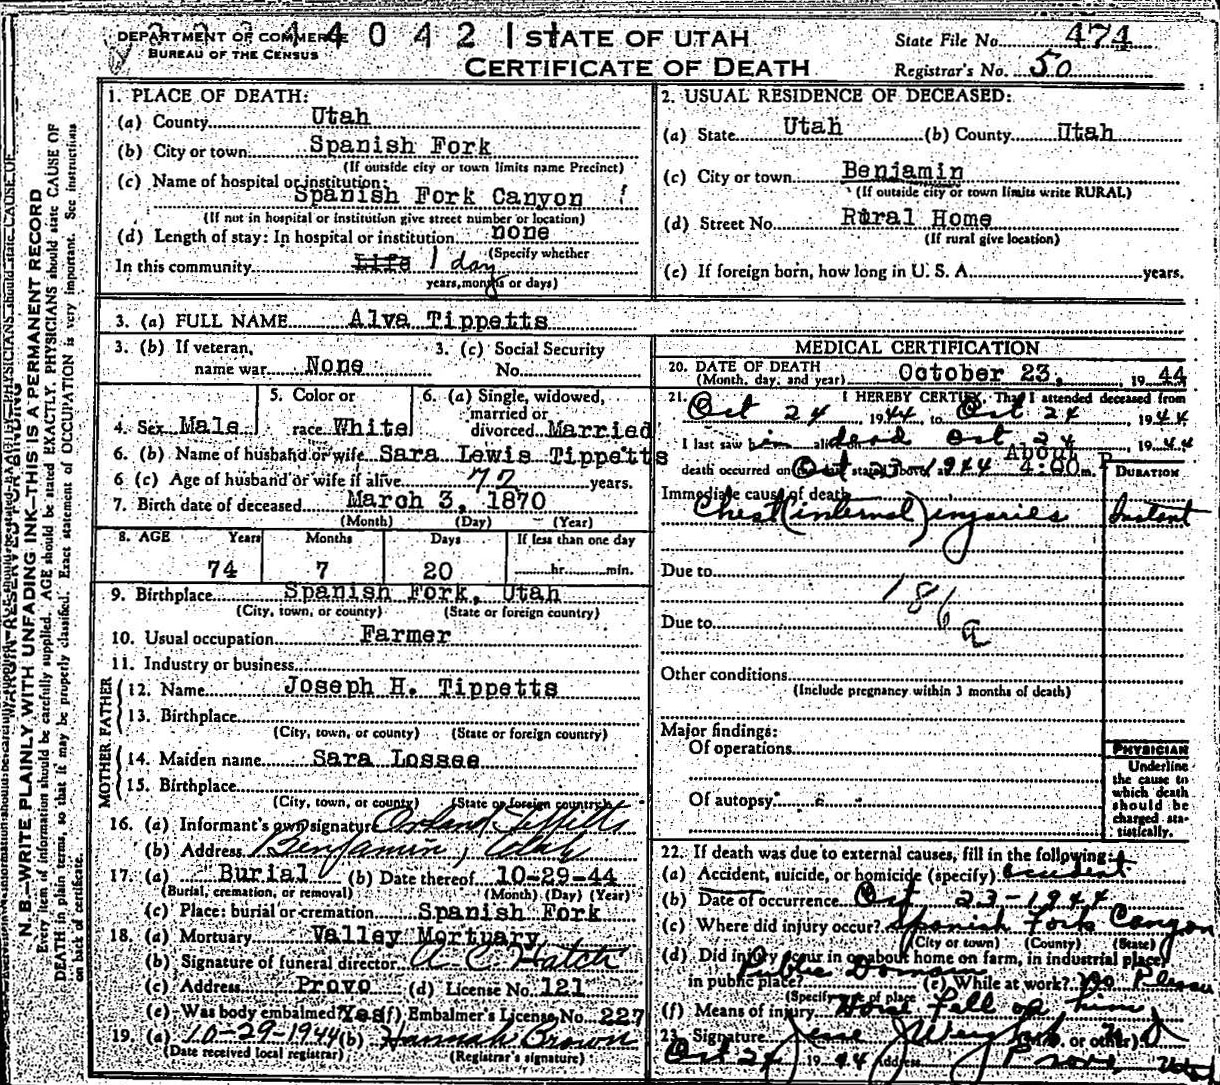 DEPARTMENT OF COMMERCE 4042 STATE OF UTAH State File No. 474
BUREAU OF THE CENSUS CERTIFICATE OF DEATH Registrar's No. 50
1. PLACE OF DEATH:
(a) County Utah
(b) City or town Spanish Fork
(If outside city or town limits name Precinct)
(c) Name of hospital or institution:
Spanish Fork Canyon
(If not in hospital or institution give street number or location)
(d) Length of stay: In hospital or institution none
(Specify whether
In this community Life 1 day
years, months or days)
2. USUAL RESIDENCE OF DECEASED:
(a) State Utah (b) County Utah
(c) City or town Benjamin
(If outside city or town limits write RURAL)
(d) Street No. Rural Home
(If rural give location)
(e) If foreign born, how long in U. S. A. years.
3. (a) FULL NAME Alva Tippetts
3. (b) If veteran, 3. (c) Social Security
name war None No.
5. Color or 6. (a) Single, widowed,
married or
4. Sex Male race White divorced Married
6. (b) Name of husband or wife Sara Lewis Tippetts
6 (c) Age of husband or wife if alive 72 years.
7. Birth date of deceased March 3, 1870
(Month) (Day) (Year)
8. AGE Years Months Days If less than one day
74 7 20 hr. min.
9. Birthplace Spanish Fork, Utah
(City, town, or county) (State or foreign country)
10. Usual occupation Farmer
11. Industry or business
FATHER
12. Name Joseph H. Tippetts
13. Birthplace
(City, town, or county) (State or foreign country)
MOTHER
14. Maiden name Sara Lossee
15. Birthplace
(City, town, or county) (State or foreign country)
16. (a) Informant's own signature Orland Tippetts
(b) Address Benjamin, Utah
17. (a) Burial (b) Date thereof 10-29-44
(Burial, cremation, or removal) (Month) (Day) (Year)
(c) Place: burial or cremation Spanish Fork
18. (a) Mortuary Valley Mortuary
(b) Signature of funeral director A. C. Hatch
(c) Address Provo (d) License No. 121
(e) Was body embalmed? Yes (f) Embalmer's License No. 227
19. (a) 10-29-1944 (b) Hannah Brown
(Date received local registrar) (Registrar's signature)
MEDICAL CERTIFICATION
20. DATE OF DEATH
(Month, day, and year) October 23, 19 44
21. I HEREBY CERTIFY, That I attended deceased from
Oct 24 1944 to Oct 24 1944
I last saw him dead Oct 24 1944
About
death occurred on Oct 23 1944 4:00 m.
DURATION
Immediate cause of death
Chest (internal) injuries Instant
Due to
186a
Due to
Other conditions
(Include pregnancy within 3 months of death)
Major findings:
Of operations
Of autopsy
PHYSICIAN
Underline
the cause to
which death
should be
charged sta-
tistically.
22. If death was due to external causes, fill in the following:
(a) Accident, suicide, or homicide (specify) accident
(b) Date of occurrence Oct 23-1944
(c) Where did injury occur? Spanish Fork Canyon
(City or town) (County) (State)
(d) Did injury occur in or about home on farm, in industrial place,
in public place? Public Domain (e) While at work? No
(Specify type of place
(f) Means of injury Horse fell on him
23. Signature (M.D. or other)
Oct 24 1944 Address Provo, Utah
N.B.—WRITE PLAINLY WITH UNFADING INK—THIS IS A PERMANENT RECORD
Every item of information should be carefully supplied. AGE should be stated EXACTLY. PHYSICIANS should state CAUSE OF
DEATH in plain terms, so that it may be properly classified. Exact statement of OCCUPATION is very important. See instructions
on back of certificate.